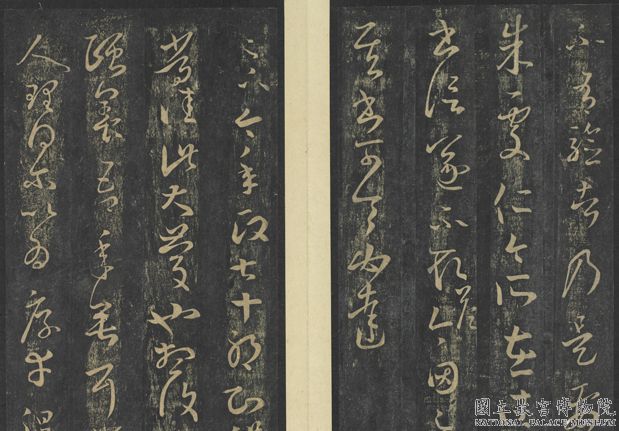 不有驗者乃是要
朱處仁今所在往
書信遂不取答今因足
其書可令必達
足下今年政七十耶知體
常佳此大慶也想復
頤養吾年垂耳
人理得爾以為厚幸但
國立故宮博物院
NATIONAL PALACE MUSEUM